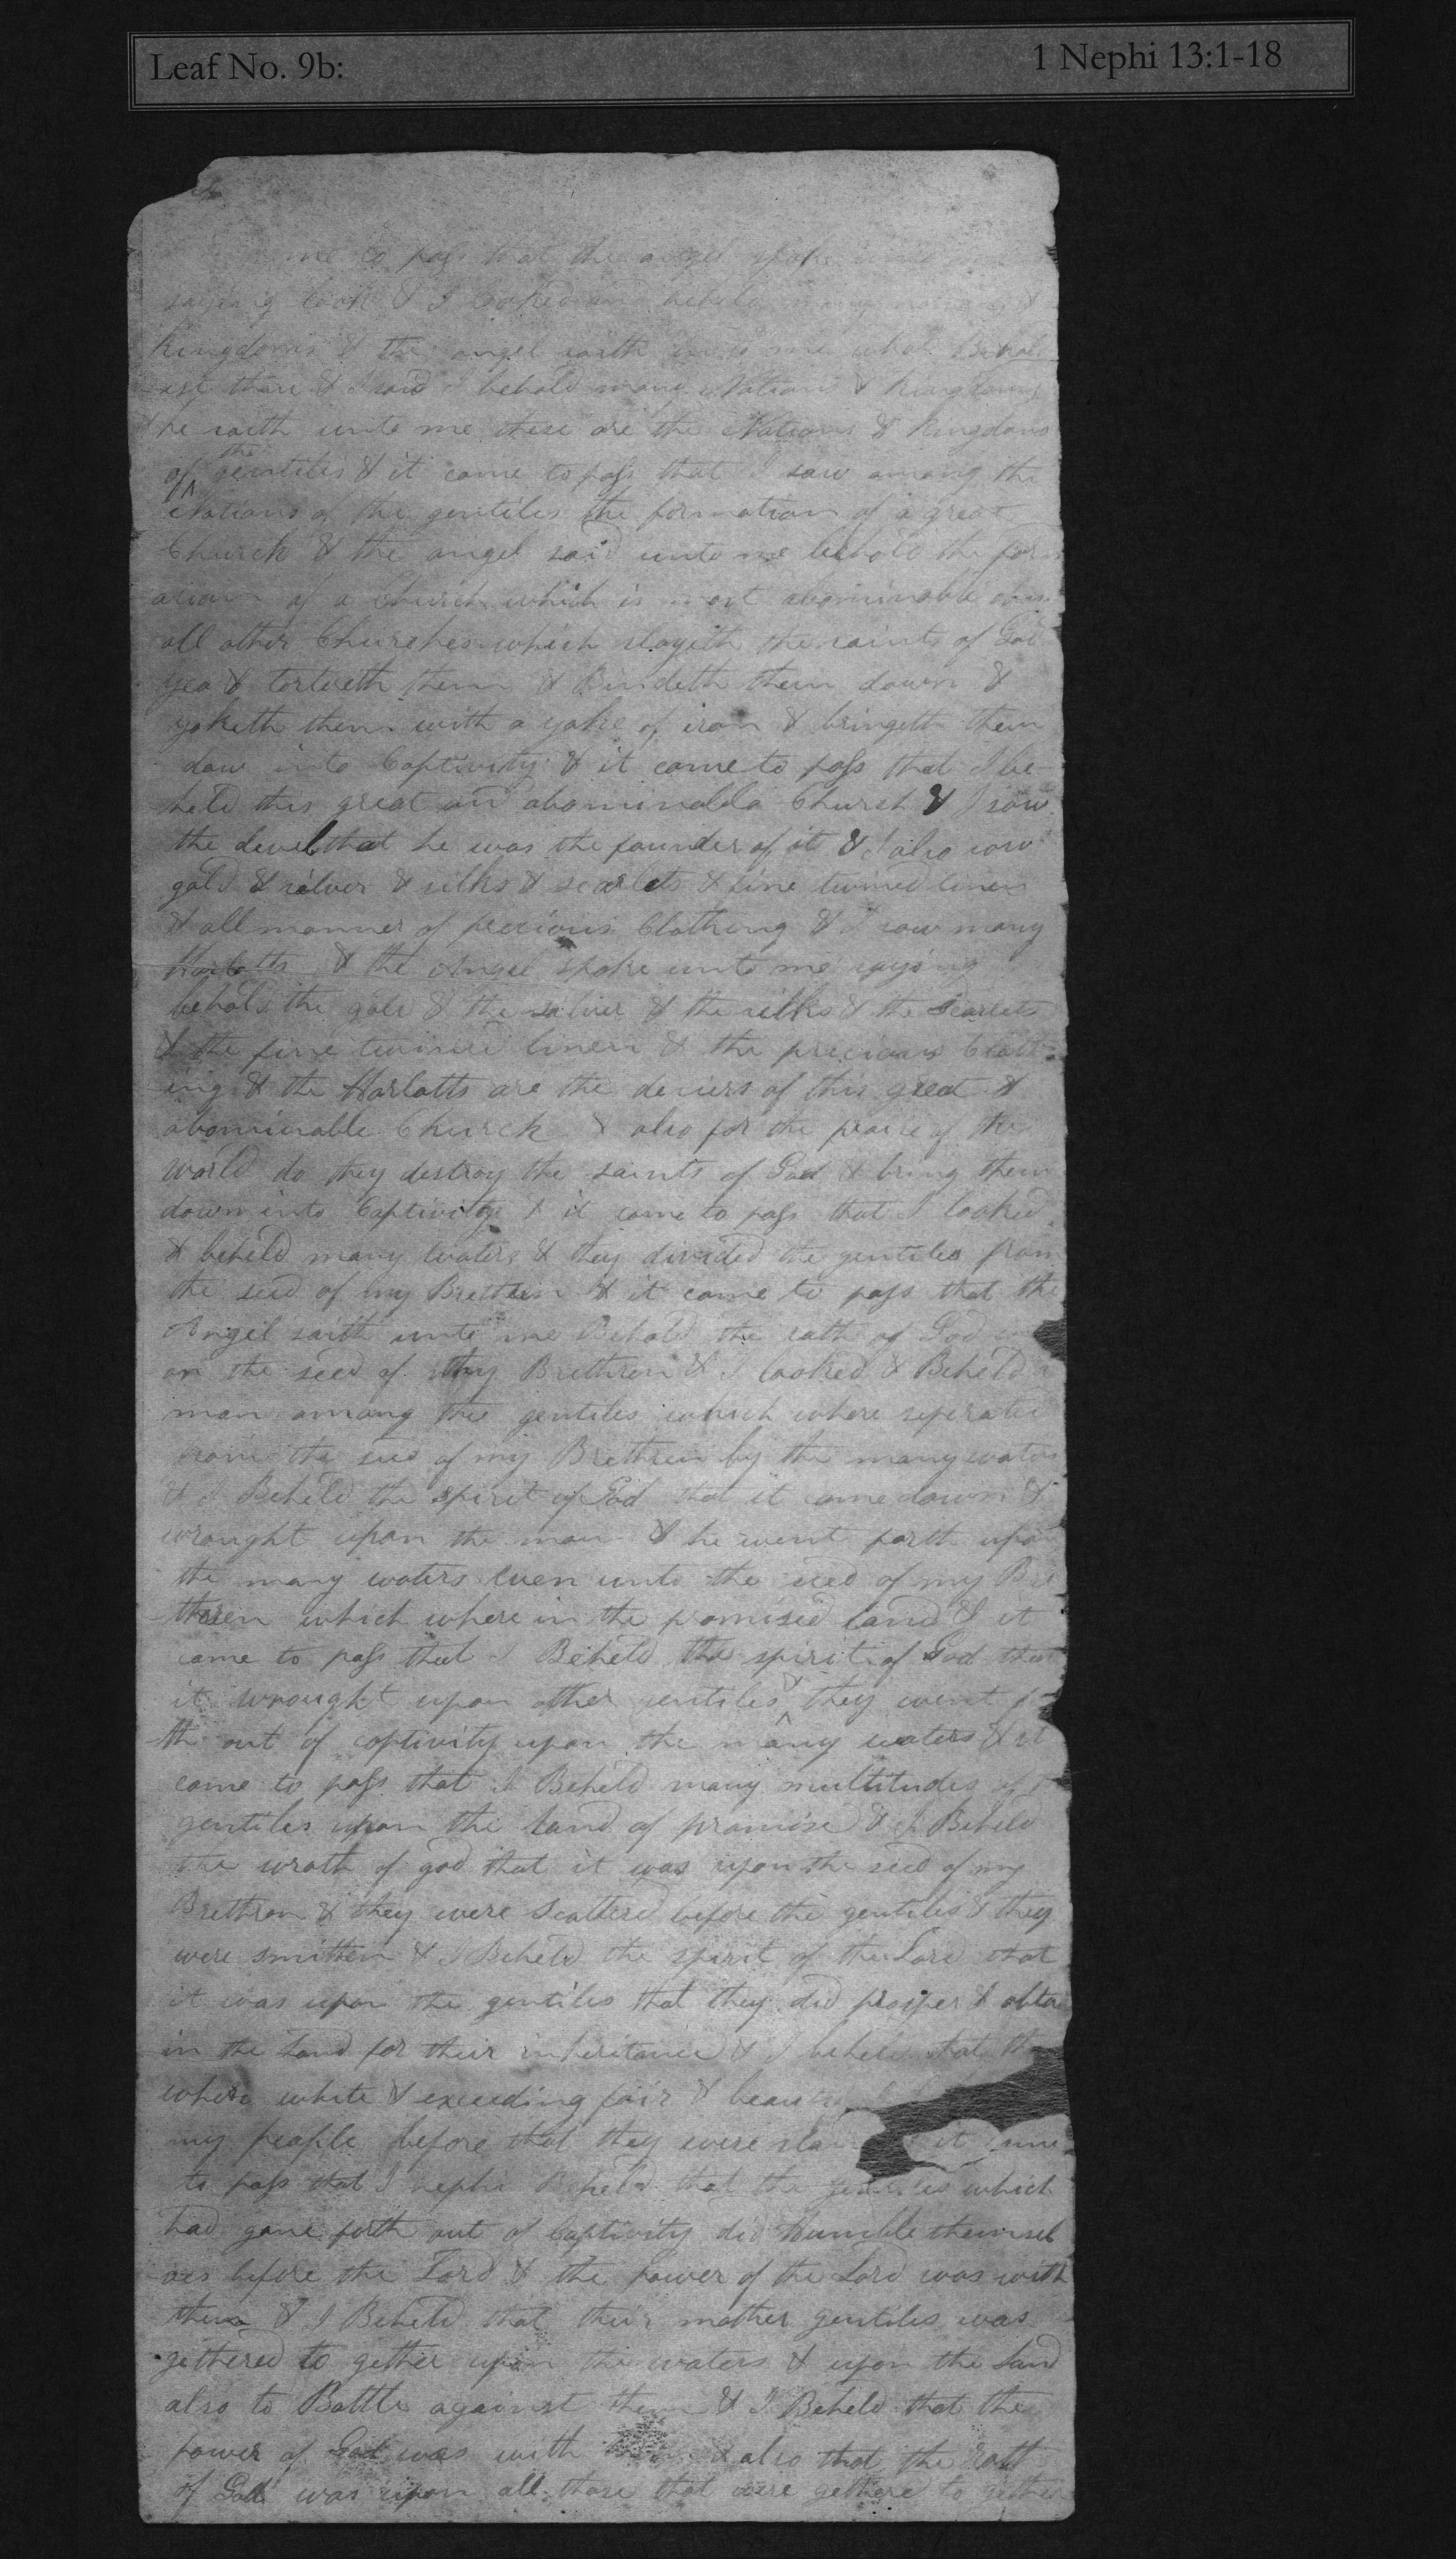 Leaf No. 9b:
1 Nephi 13:1-18
me to pass that the angel spake unto me
saying look & I looked and beheld many nations &
Kingdoms & the angel saith unto me what Behold
-est thou & I said I behold many Nations & Kingdoms
& he saith unto me these are the Nations & Kingdoms
of the gentiles & it came to pass that I saw among the
Nations of the gentiles the formation of a great
Church & the angel said unto me behold the form
ation of a Church which is most abominable above
all other Churches which slayeth the saints of God
yea & tortureth them & Bindeth them down &
yoketh them with a yoke of iron & bringeth them
dow into Captivity & it came to pass that I be
held this great and abominable Church & I saw
the devel that he was the founder of it & I also saw
gold & silver & silks & scarlets & fine twined linen
& all manner of precious Clothing & I saw many
Harlotts & the Angel spoke unto me saying
behold the gold & the silver & the silks & the Scarlets
& the fine twined linen & the precious Cloth
ing & the Harlotts are the desiers of this great &
abominable Church & also for the praise of the
world do they destroy the saints of God & bring them
down into Captivity & it came to pass that I looked
& beheld many waters & they divided the gentiles from
the seed of my Brethren & it came to pass that the
Angel saith unto me Behold the rath of God
on the seed of thy Brethren & I looked & Beheld a
man among the gentiles which where seperated
from the seed of my Brethren by the many waters
& I Beheld the spirit of God that it came down &
wrought upon the man & he went forth upon
the many waters even unto the seed of my Bre
-theren which where in the promised land & it
came to pass that I Beheld the spirit of God that
it wrought upon other gentiles & they went for
-th out of captivity upon the many waters & it
came to pass that I Beheld many multitudes of
gentiles upon the land of promise & I Beheld
the wrath of god that it was upon the seed of my
Brethren & they were scattered before the gentiles & they
were smitten & I Beheld the spirit of the Lord that
it was upon the gentiles that they did prosper & obta
in the Land for their inheritance & I beheld that they
where white & exceeding fair & beautiful
my people before that they were slain it came
to pass that I nephi Beheld that the gentiles which
had gone forth out of Captivity did Humble themsel
-ves before the Lord & the power of the Lord was with
them & I Beheld that their mother gentiles was
gethered to gether upon the waters & upon the Land
also to Battle against them & I Beheld that the
power of God was with them & also that the rath
of God was upon all those that were gethered to gether